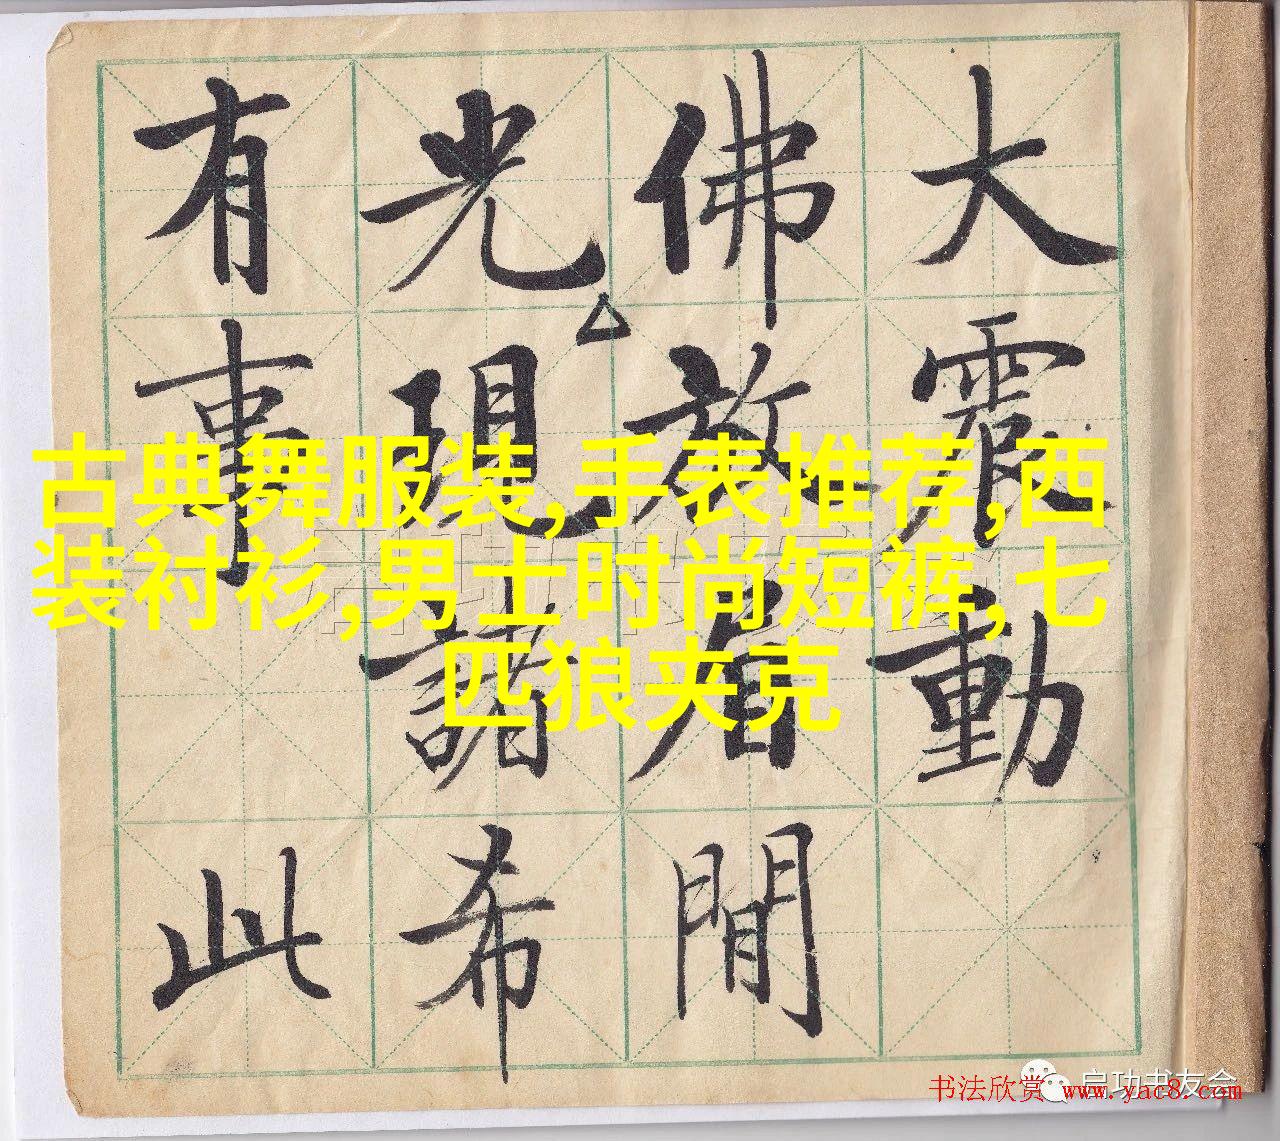 大震動
佛放眉間
光現諸希
有事此
古典舞服装,手表推荐,西
装衬衫,男士时尚短裤,七
匹狼夹克
启功书友会
书法欣赏 www.yac8.com